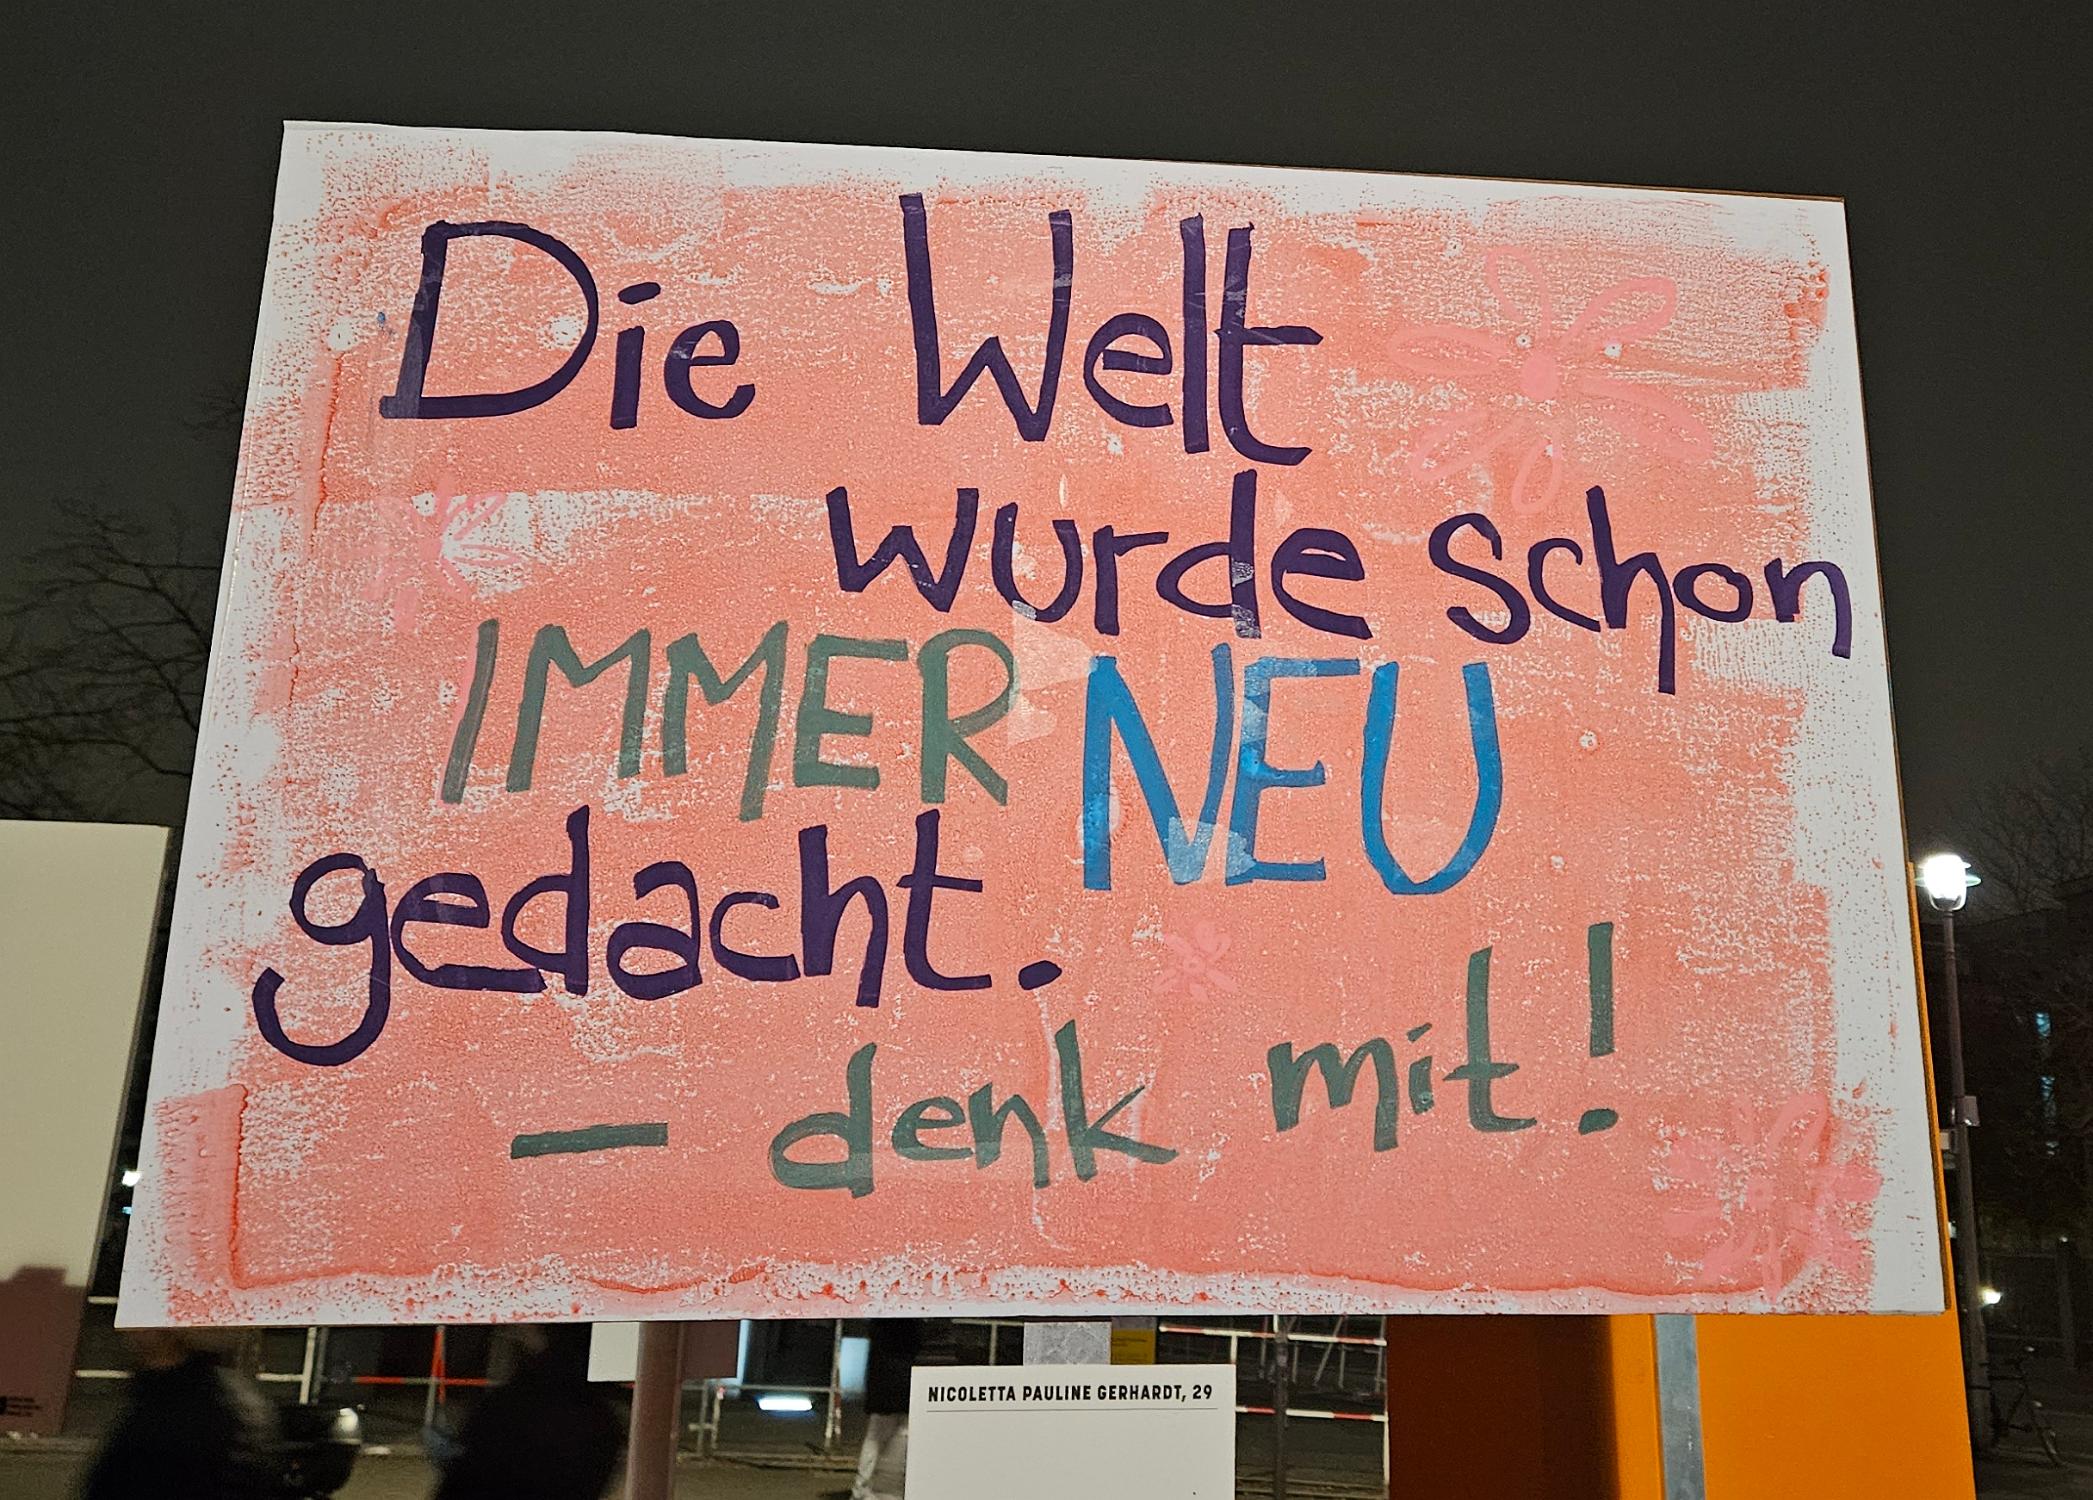 Die Welt
wurde schon
IMMER NEU
gedacht.
– denk mit!
NICOLETTA PAULINE GERHARDT, 29